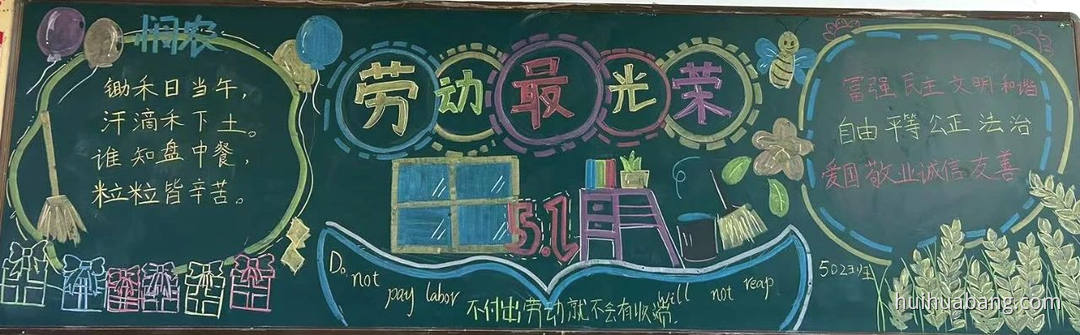 悯农
锄禾日当午，
汗滴禾下土。
谁知盘中餐，
粒粒皆辛苦。
劳动最光荣
5.1
Do not pay labor will not reap
不付出劳动就不会有收获.
富强 民主 文明 和谐
自由 平等 公正 法治
爱国 敬业 诚信 友善
502班
huihuabang.com